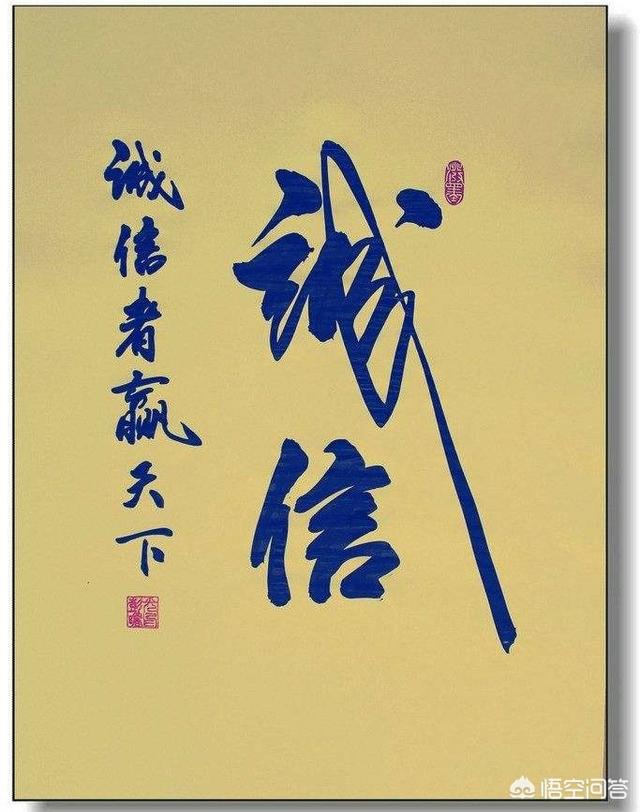 诚信
诚信者赢天下
悟空问答